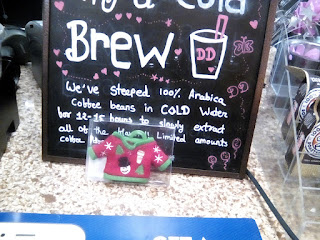 Try a Cold
BREW
DD
We've Steeped 100% Arabica
Coffee beans in COLD Water
for 12-15 hours to slowly extract
all of the flavor. Limited amounts